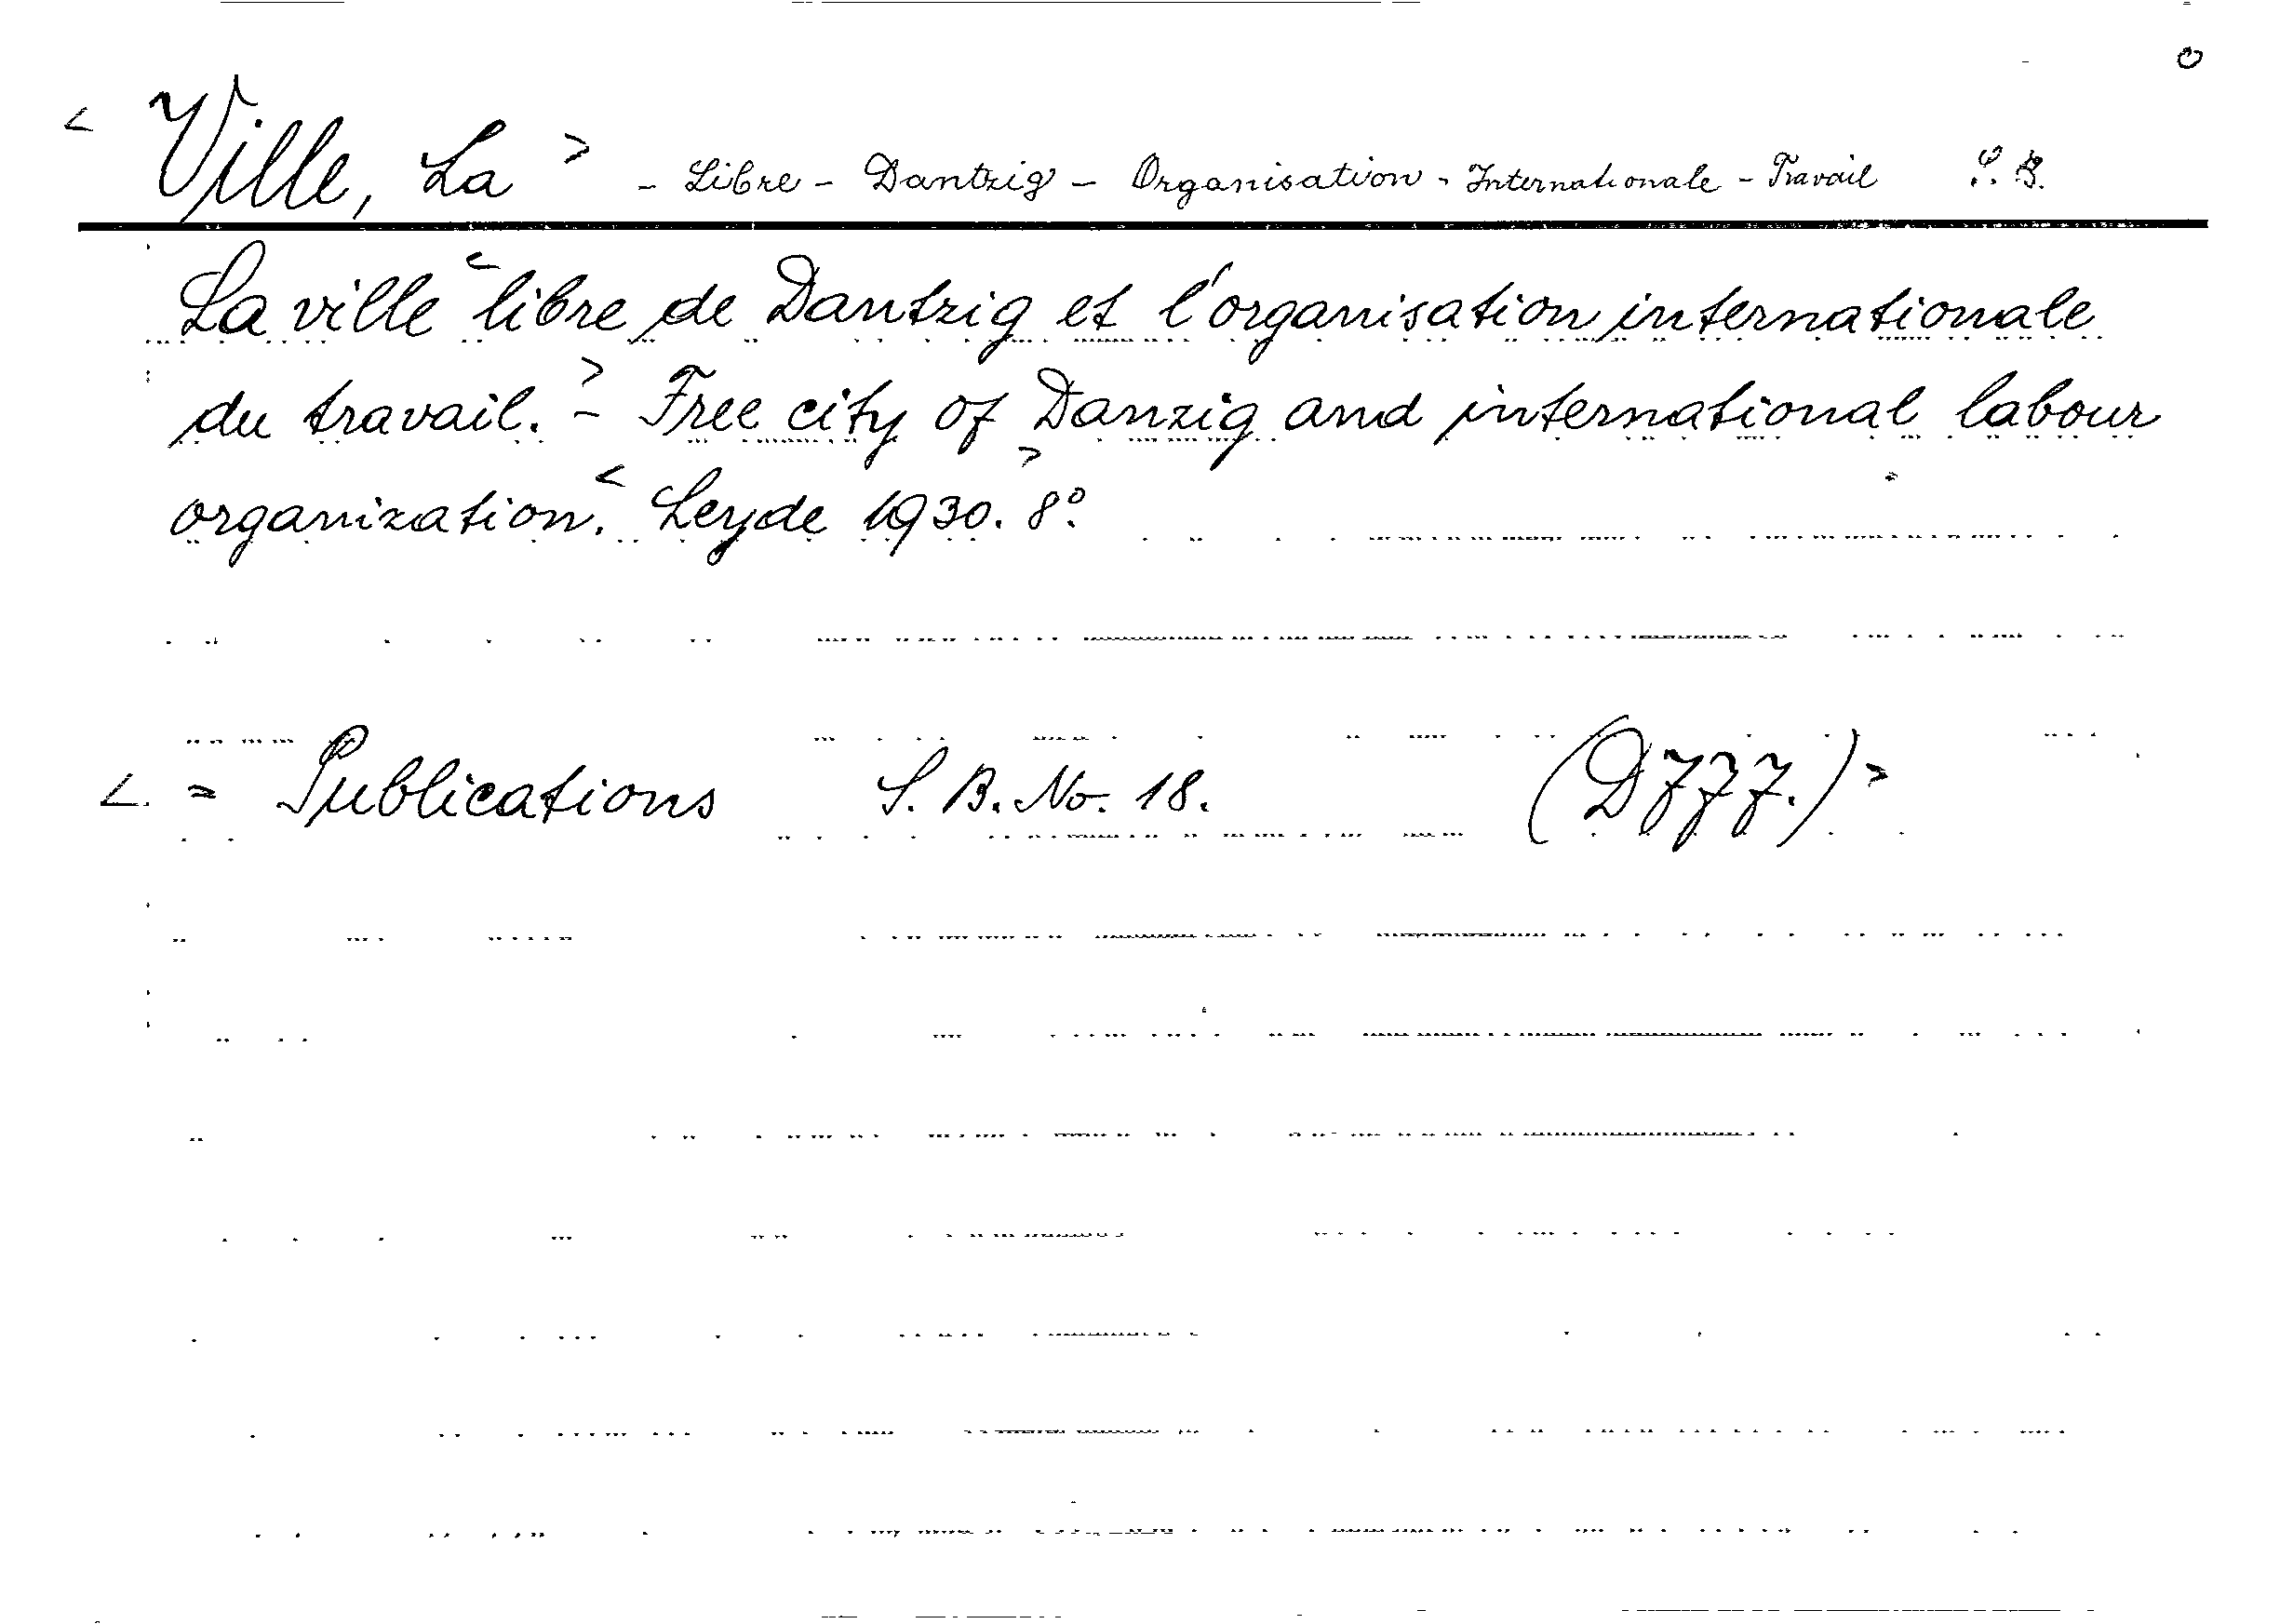 < Ville, La > - Libre - Dantzig - Organisation - Internationale - Travail S. B.
La ville < libre de Dantzig et l'organisation internationale
du travail. > - Free city of Danzig and international labour
organization. < Leyde 1930. > 8°.
< = Publications S. B. No. 18. (D 777.) >